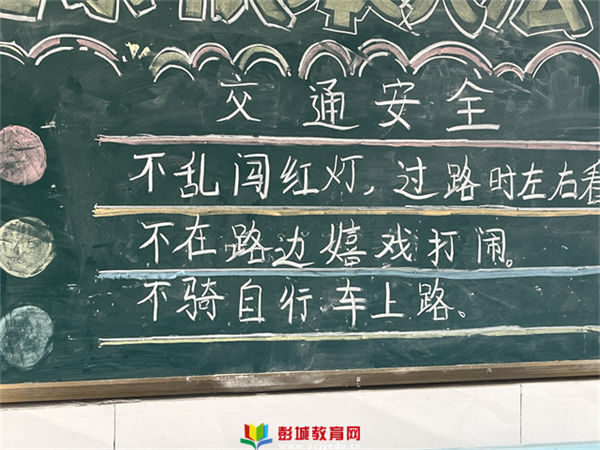 交通安全
不乱闯红灯,过路时左右看
不在路边嬉戏打闹。
不骑自行车上路。
彭城教育网